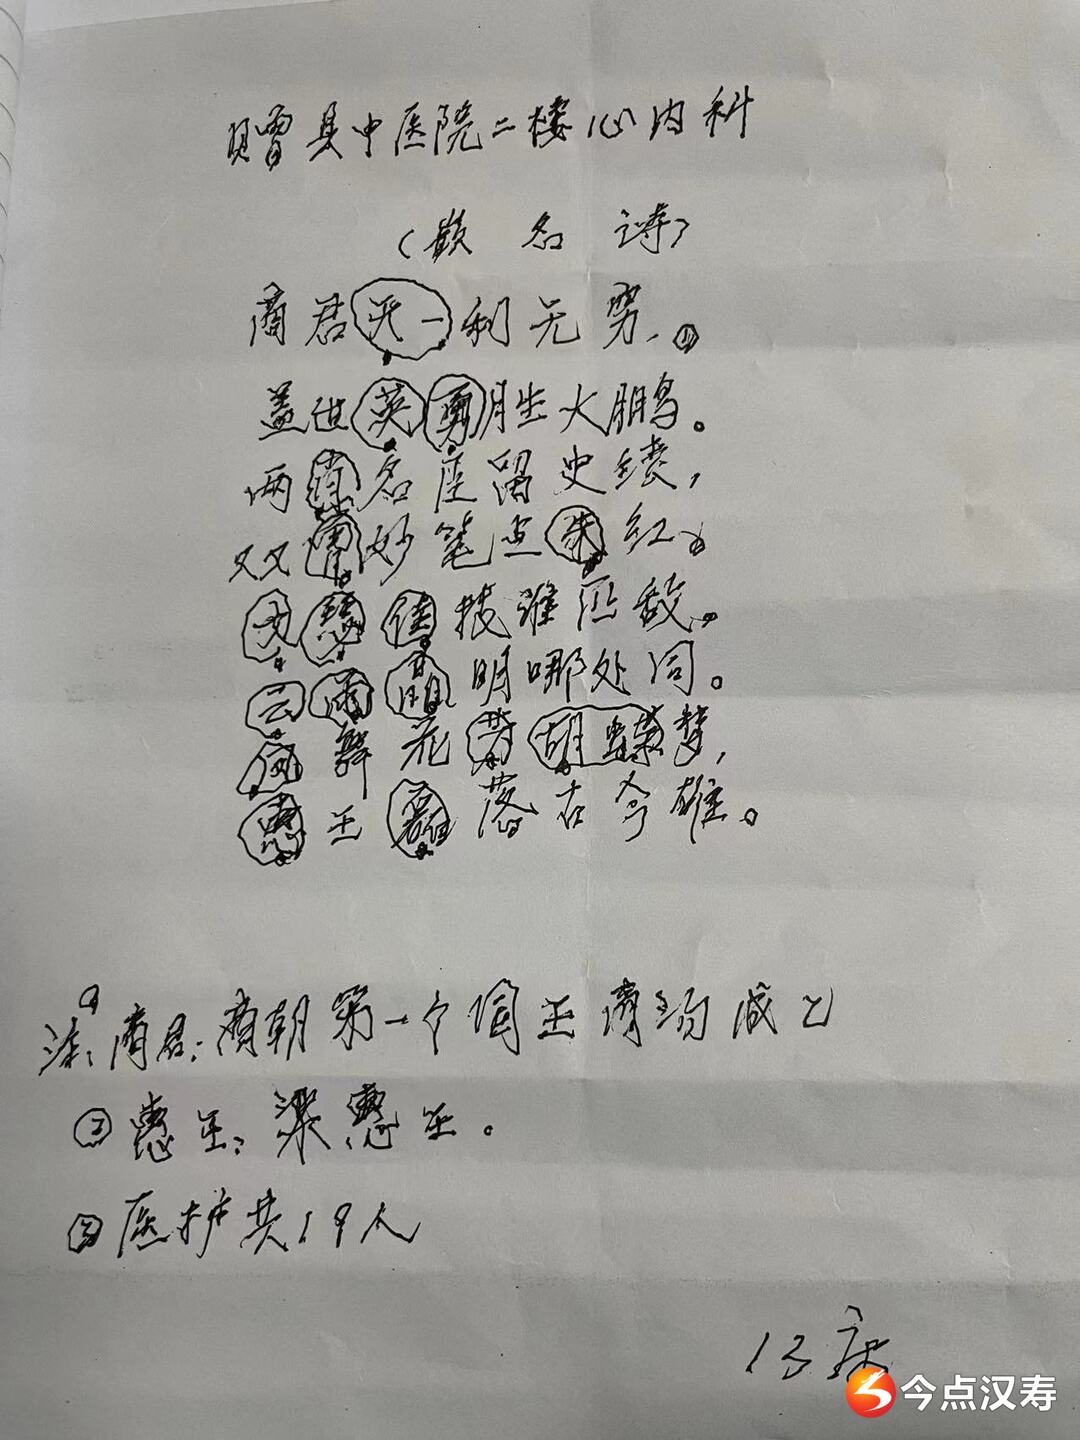 赠县中医院二楼心内科
(嵌名诗)
商君天一利无穷、①
盖世英勇胜大鹏。
两肖名座留史绩,
双甫妙笔点朱红。
文慧佳技谁匹敌、
云雨晴明哪处同。
舞花芳胡蝶梦,
惠王磊落古今雄。
注:①商君:商朝第一个国王商汤成乙
②惠王:梁惠王。
③医护共19人
13床
今点汉寿